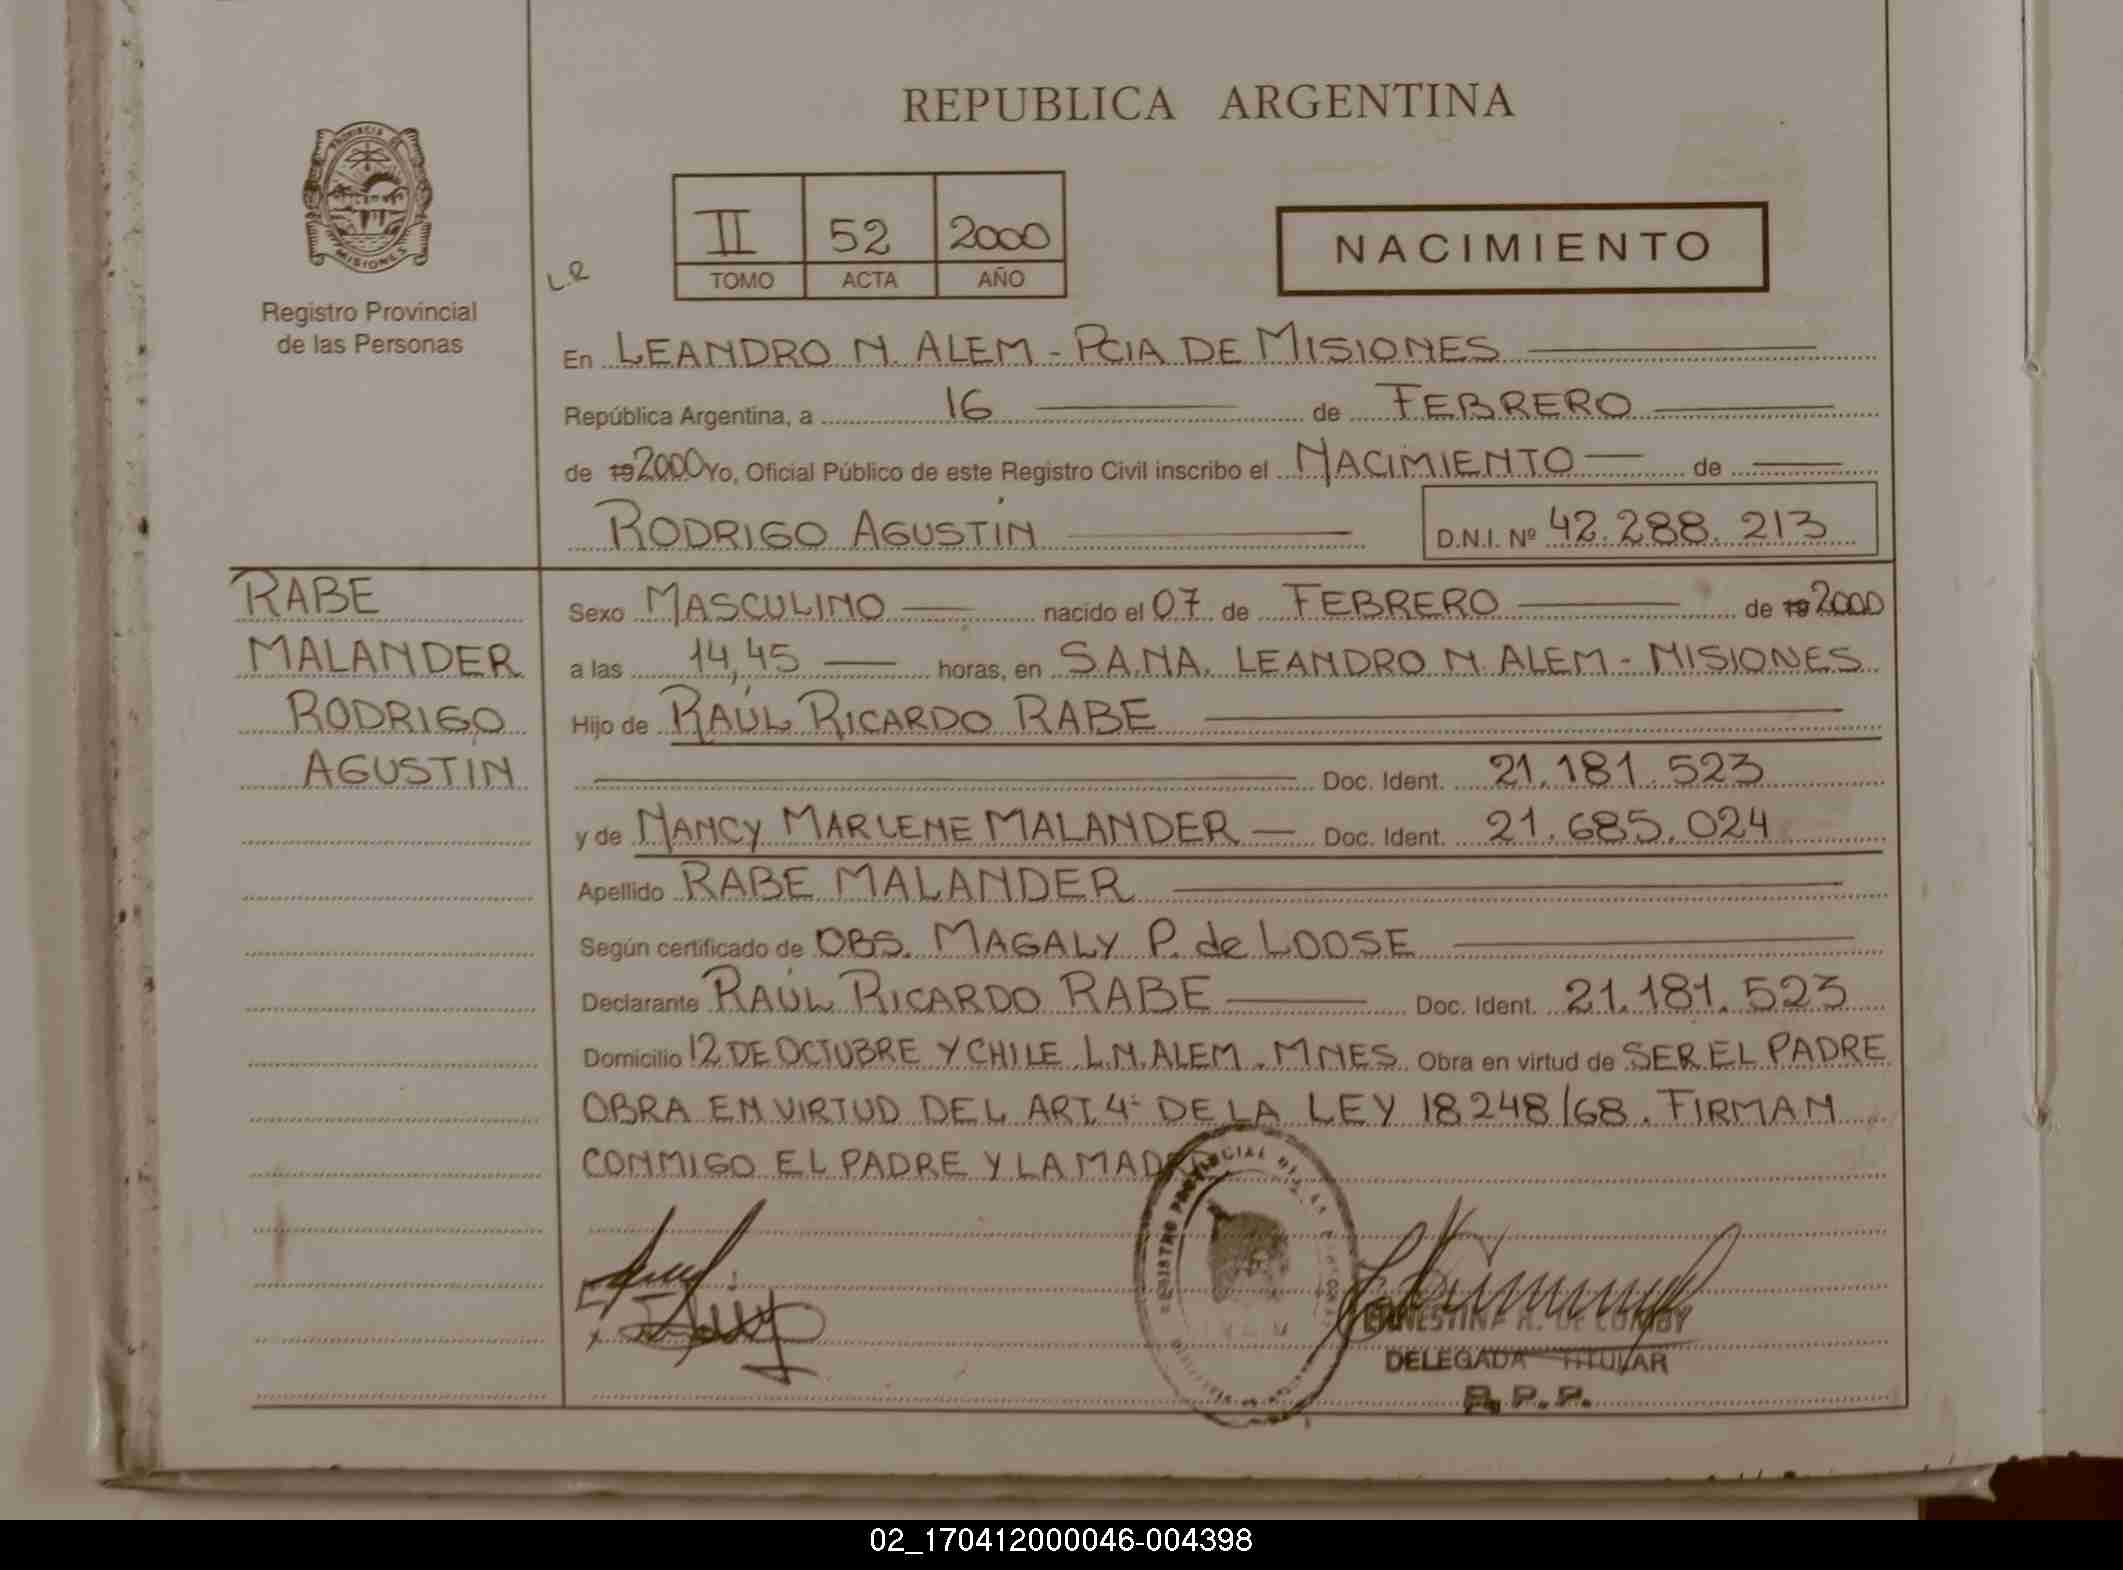 REPUBLICA ARGENTINA
PROVINCIA DE
MISIONES
Registro Provincial
de las Personas
L.R
II 52 2000
TOMO ACTA AÑO
NACIMIENTO
En LEANDRO N. ALEM - PCIA DE MISIONES
República Argentina, a 16 de FEBRERO
de 19 2000 Yo, Oficial Público de este Registro Civil inscribo el NACIMIENTO de
RODRIGO AGUSTÍN D.N.I. Nº 42.288.213
RABE
MALANDER
RODRIGO
AGUSTIN
Sexo MASCULINO nacido el 07 de FEBRERO de 19 2000
a las 14,45 horas, en S.A.N.A. LEANDRO N. ALEM - MISIONES
Hijo de RAÚL RICARDO RABE
Doc. Ident. 21.181.523
y de NANCY MARLENE MALANDER Doc. Ident. 21.685.024
Apellido RABE MALANDER
Según certificado de OBS. MAGALY P. de LOOSE
Declarante RAÚL RICARDO RABE Doc. Ident. 21.181.523
Domicilio 12 DE OCTUBRE Y CHILE L.N.ALEM - MNES. Obra en virtud de SER EL PADRE
OBRA EN VIRTUD DEL ART. 4º DE LA LEY 18248/68. FIRMAN
CONMIGO EL PADRE Y LA MADRE
REGISTRO PROVINCIAL DE LAS
ERNESTINA R. DE
DELEGADA TITULAR
R.P.P.
02_170412000046-004398